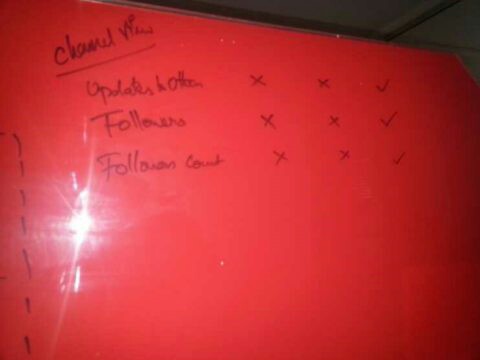 Channel View
Updates to Other × × ✓
Followers × × ✓
Followers Count × × ✓